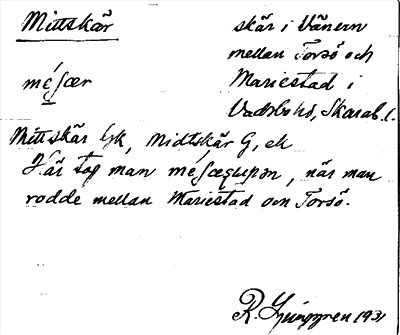 Mittskär
skär i Vänern
mellan Torsö och
Mariestad i
Vadsbohd, Skarab. l.
meʃær
Mittskär Gk, Midtskär G, ek
Här tog man
, när man
rodde mellan Mariestad och Torsö.
R. Ljunggren 1931